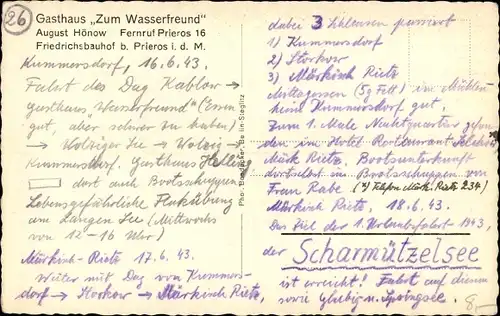 26
Gasthaus „Zum Wasserfreund"
August Hönow Fernruf Prieros 16
Friedrichsbauhof b. Prieros i. d. M.
Kummersdorf, 16.6.43.
Fahrt des Dag Kablow →
Gasthaus „Wasserfreund" (Essen
gut, aber schwer zu haben)
→ Wolziger See → Wolzig →
Kummersdorf. Gasthaus
dort auch Bootsschuppen
Lebensgefährliche Flakübung
am Langen See (Mittwochs
von 12-16 Uhr)
Märkisch-Rietz 17.6.43.
Weiter mit Dag von Kummers-
dorf → Storkow → Märkisch Rietz,
Pho: Berlin-Steglitz
dabei 3 Schleusen passiert
1) Kummersdorf
2) Storkow
3) Märkisch Rietz
Mittagessen (50g Fett) im Mühlen-
heim Kummersdorf gut,
Zum 1. Male Nachtquartier gefun-
den im Hotel Restaurant
Märk Rietz, Bootsunterkunft
daselbst im Bootsschuppen von
Frau Rabe (*) Telefon Märk. Rietz 234)
Märkisch Rietz, 18.6.43.
Das Ziel der 1. Urlaubsfahrt 1943,
der Scharmützelsee
ist erreicht! Fahrt auf diesem
sowie Glubig u. Springsee.
8,-